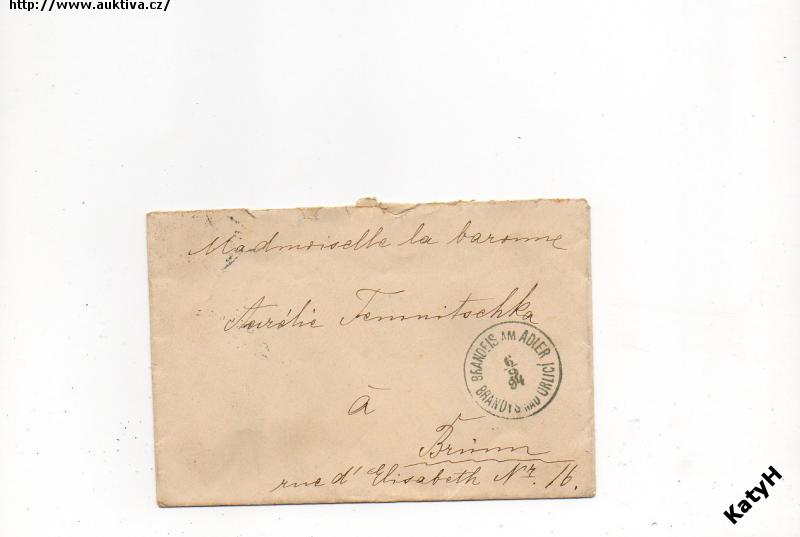 http://www.auktiva.cz/
Madmoiselle la baronne
Aurélie Temnitschka
à
Brünn
rue d'Elisabeth Nr. 16.
BRANDEIS AM ADLER
6/9 94
BRANDÝS NAD ORLICÍ
KatyH